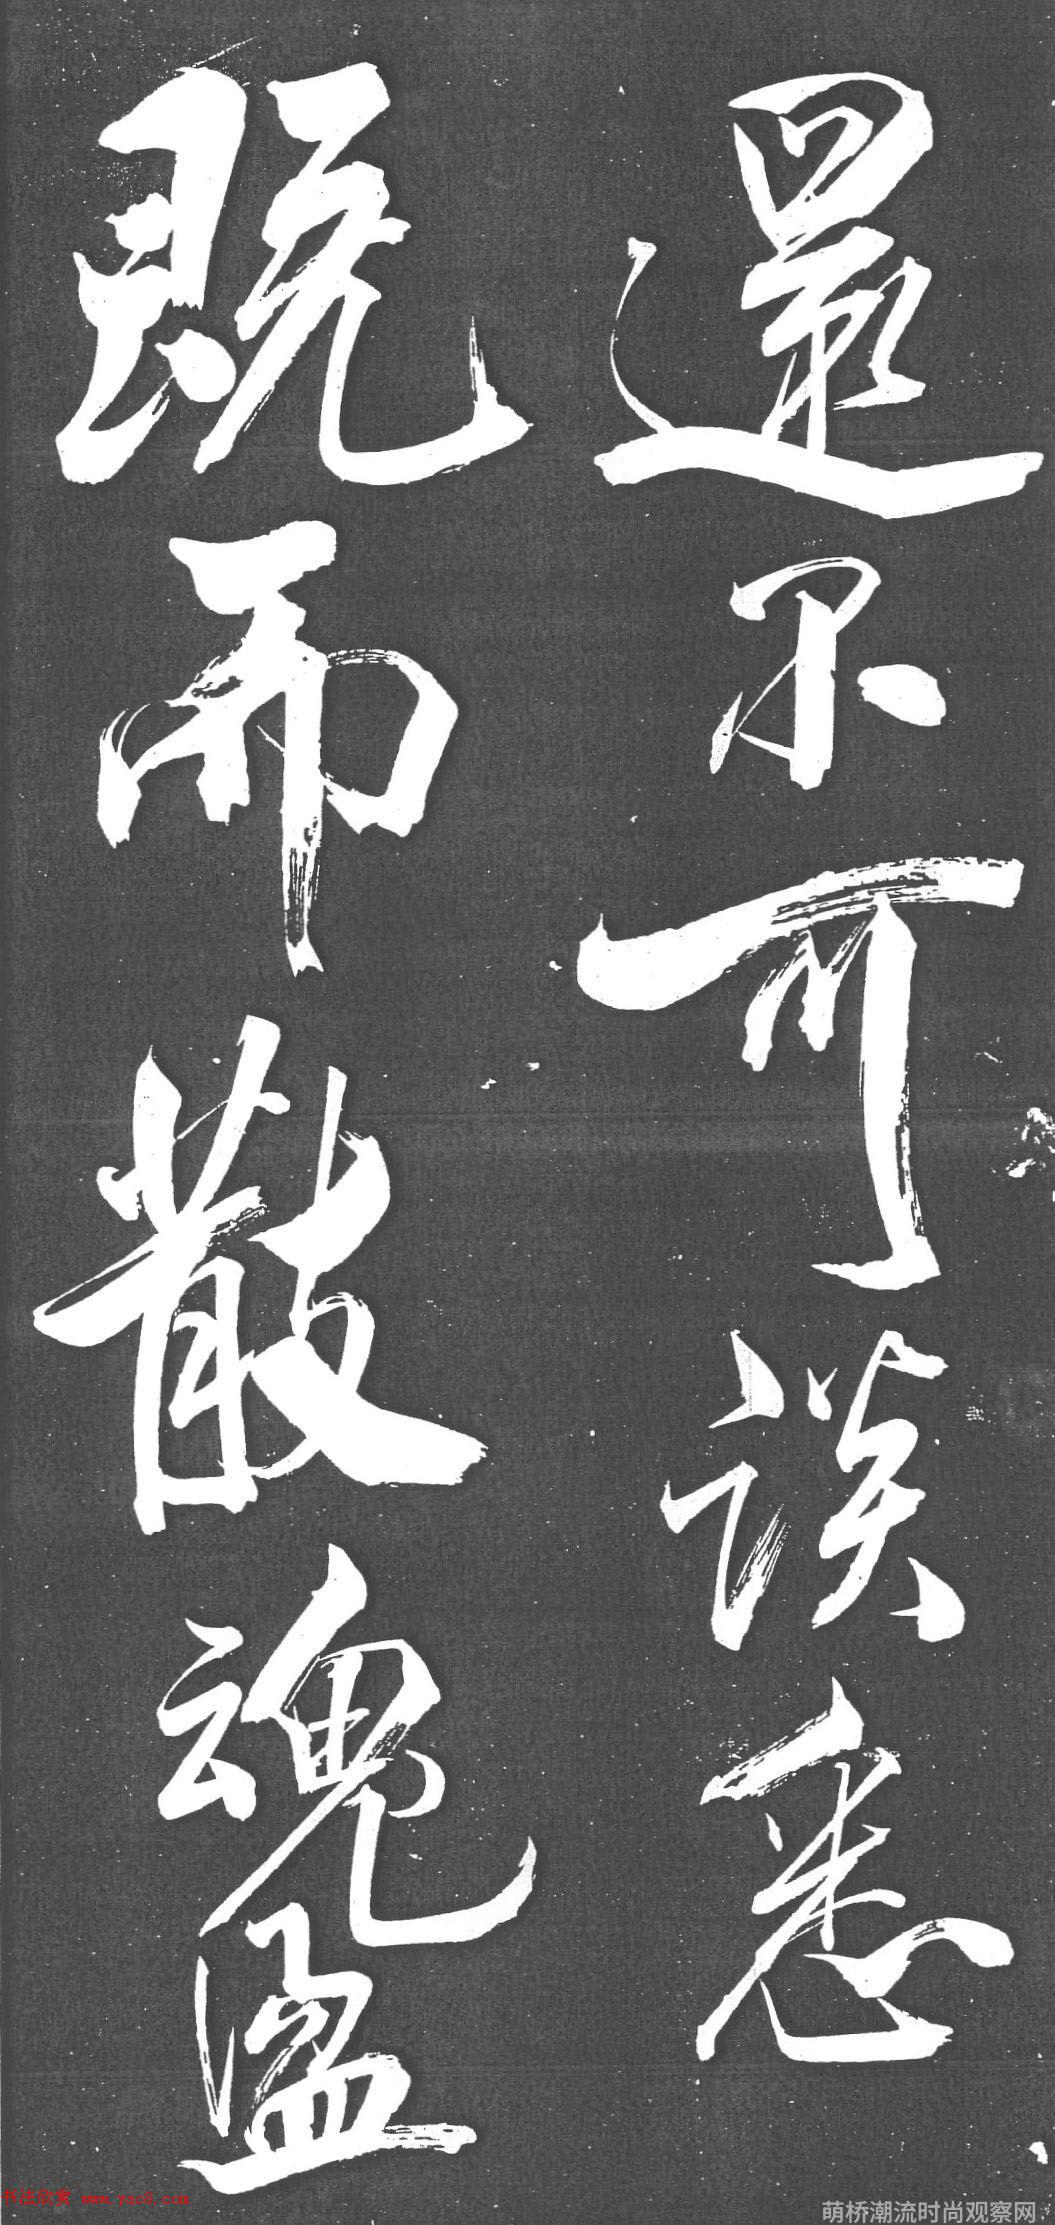 還不可談悉
既而散魂盪
书法欣赏 www.yac8.com
萌桥潮流时尚观察网